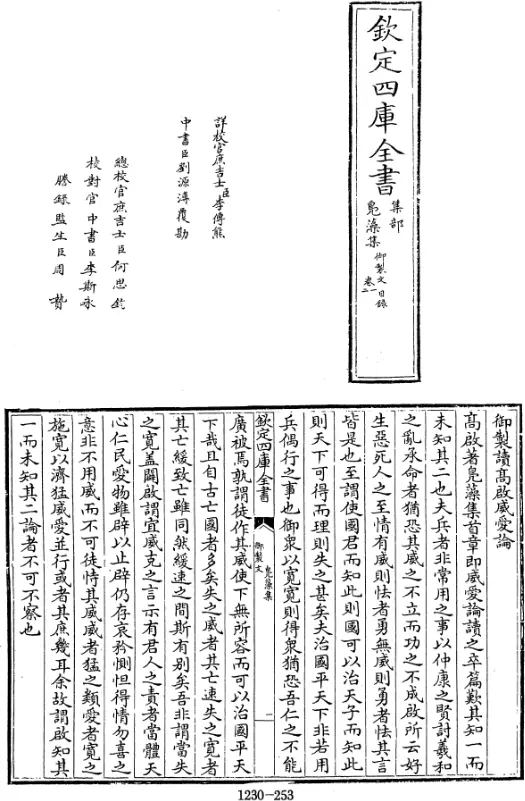 欽定四庫全書
集部
鳬藻集
御製文目錄
卷一
二
詳校官庶吉士臣李傳熊
中書臣劉源溥覆勘
總校官庶吉士臣何思鈞
校對官中書臣李斯咏
謄錄監生臣周贄
御製讀髙啟威愛論
髙啟著鳬藻集首章即威愛論讀之卒篇歎其知一而
未知其二也夫兵者非常用之事以仲康之賢討羲和
之亂承命者猶恐其威之不立而功之不成啟所云好
生惡死人之至情有威則怯者勇無威則勇者怯其言
皆是也至謂使國君而知此則國可以治天子而知此
則天下可得而理則失之甚矣夫治國平天下非若用
兵偶行之事也御衆以寛寛則得衆猶恐吾仁之不能
欽定四庫全書
鳬藻集
御製文
一
廣被焉孰謂徒作其威使下無所容而可以治國平天
下哉且自古亡國者多矣失之威者其亡速失之寛者
其亡緩致亡雖同然緩速之間斯有别矣吾非謂當失
之寛盖闢啟謂宜威克之言示有君人之責者當體天
心仁民愛物雖辟以止辟仍存哀矜惻怛得情勿喜之
意非不用威而不可徒恃其威威者猛之類愛者寛之
施寛以濟猛威愛並行或者其庶幾耳余故謂啟知其
一而未知其二論者不可不察也
1230-253